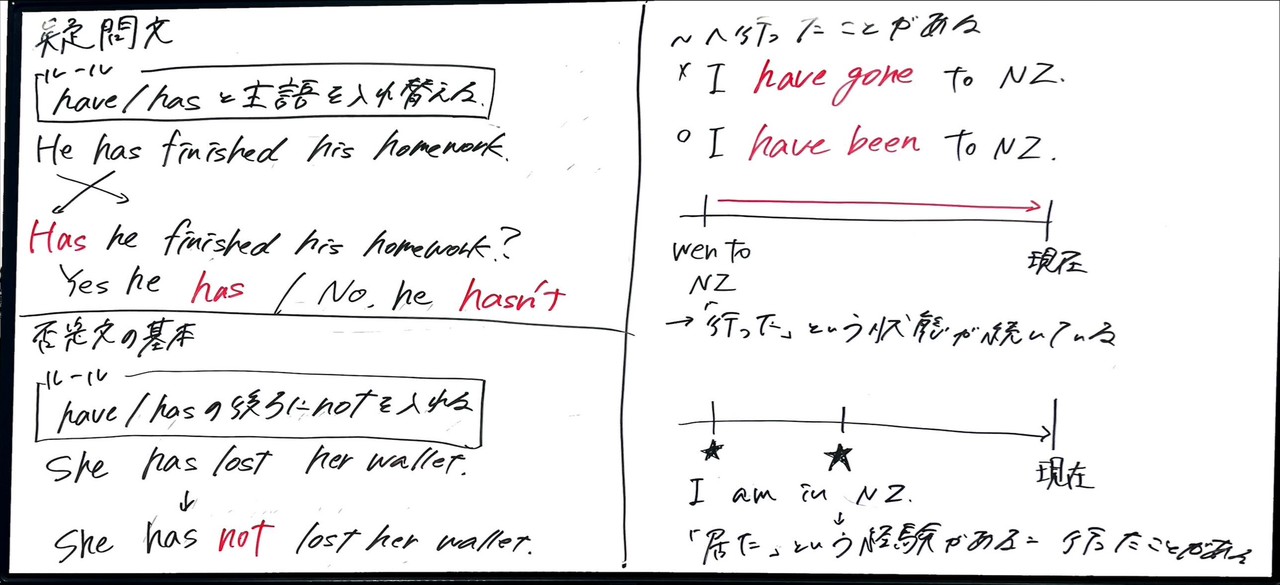 疑問文
ルール
have/hasと主語を入れ替える.
He has finished his homework.
Has he finished his homework?
Yes he has / No, he hasn't
否定文の基本
ルール
have/hasの後ろにnotを入れる
She has lost her wallet.
↓
She has not lost her wallet.
～へ行ったことがある
× I have gone to NZ.
○ I have been to NZ.
wen to
NZ
現在
→「行った」という状態が続いている
★ ★
現在
I am in NZ.
↓
「居た」という経験がある= 行ったことがある